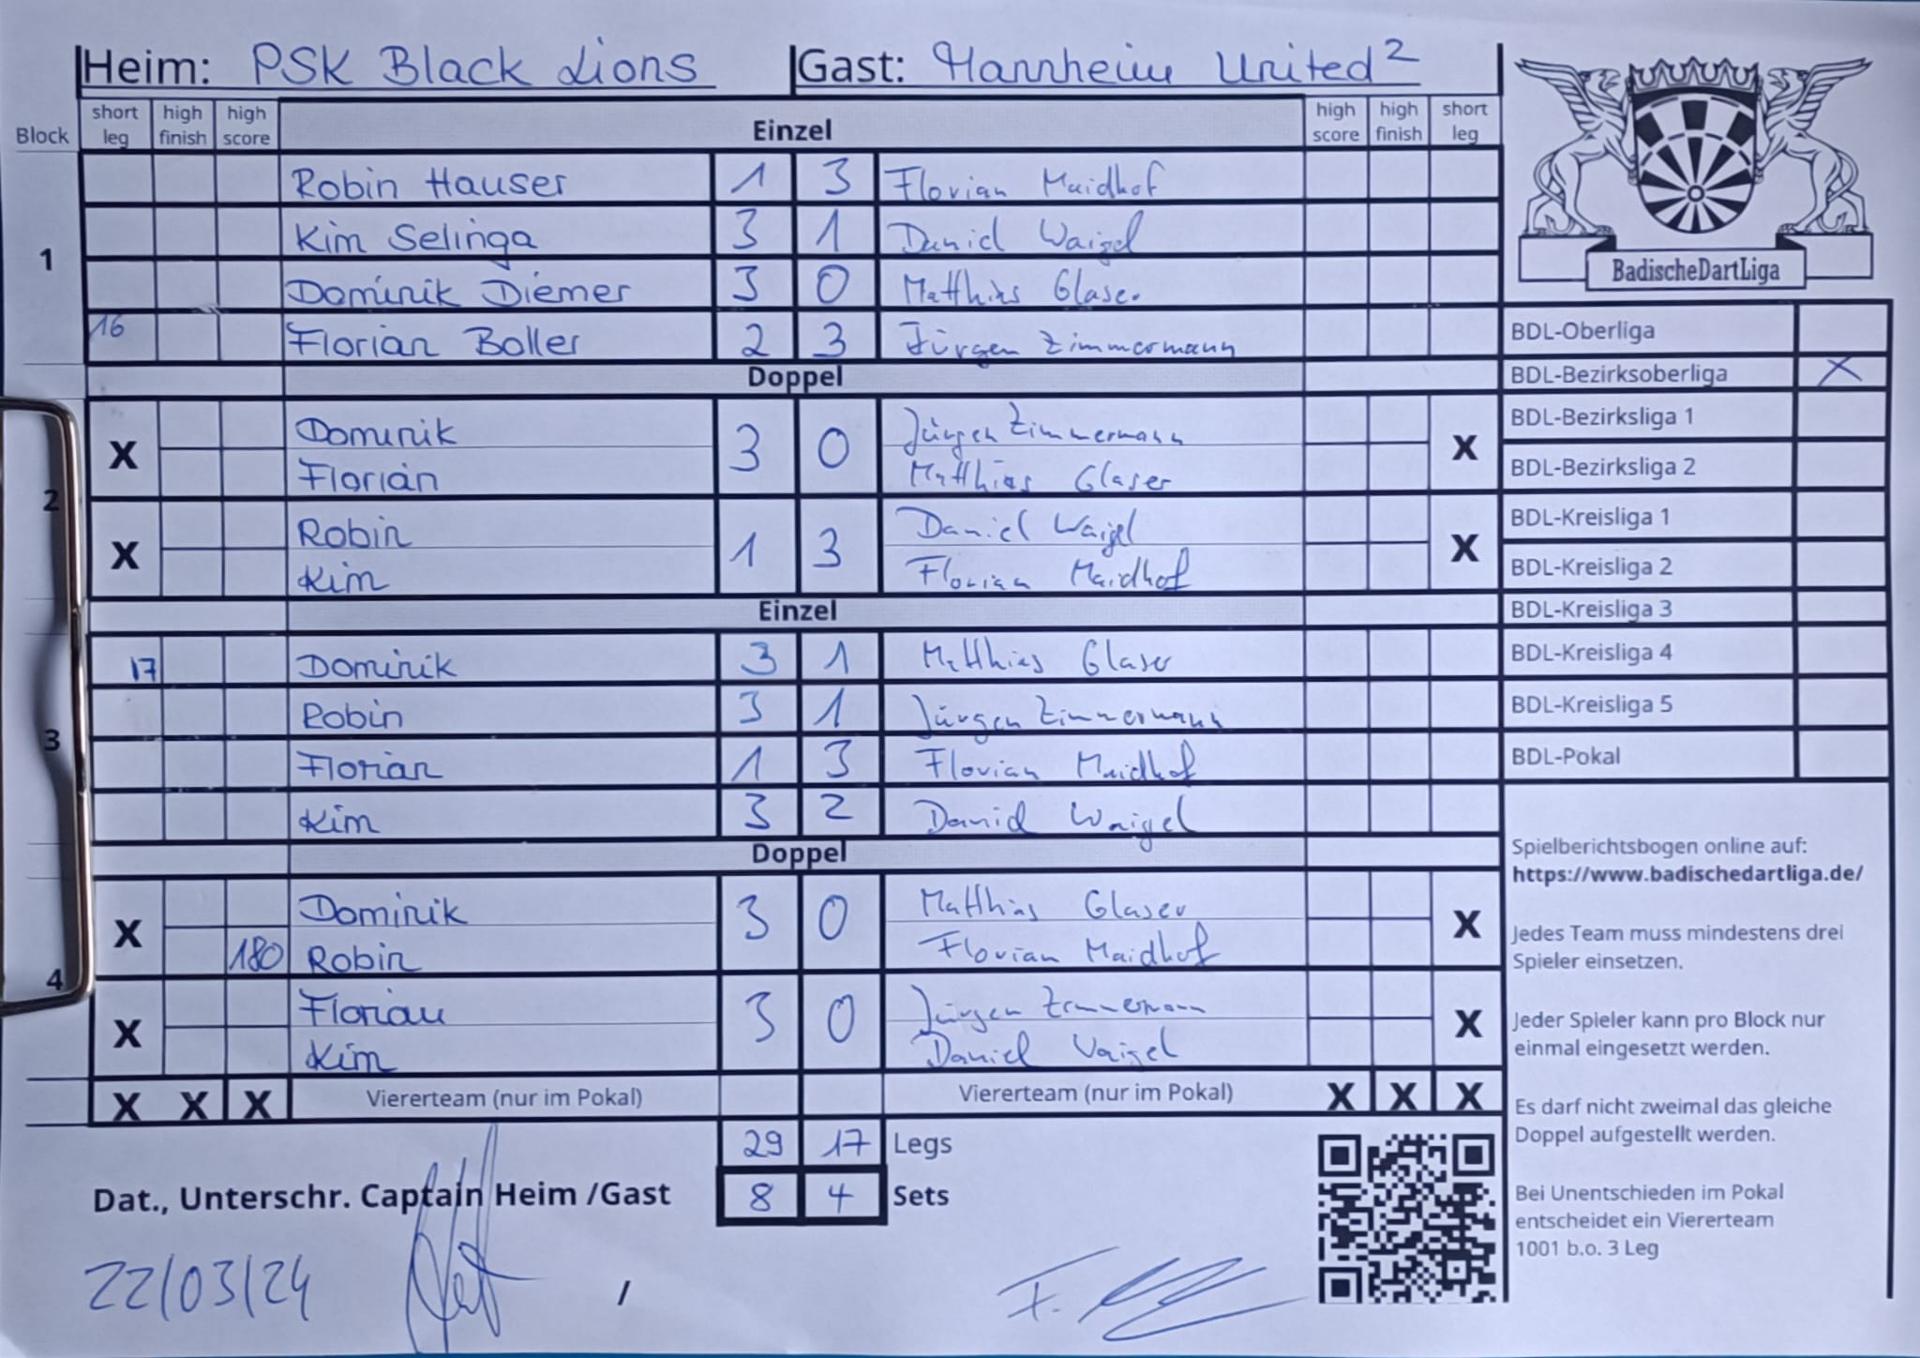 Heim: PSK Black Lions Gast: Mannheim United 2
Block short leg high finish high score Einzel high score high finish short leg
1
Robin Hauser 1 3 Florian Maidhof
Kim Selinga 3 1 Daniel Waigel
Dominik Diemer 3 0 Matthias Glaser
16 Florian Boller 2 3 Jürgen Zimmermann
Doppel
2
X Dominik 3 0 Jürgen Zimmermann X
Florian Matthias Glaser
X Robin 1 3 Daniel Waigel X
Kim Florian Maidhof
Einzel
3
17 Dominik 3 1 Matthias Glaser
Robin 3 1 Jürgen Zimmermann
Florian 1 3 Florian Maidhof
Kim 3 2 Daniel Waigel
Doppel
4
X Dominik 3 0 Matthias Glaser X
180 Robin Florian Maidhof
X Florian 3 0 Jürgen Zimmermann X
Kim Daniel Waigel
X X X Viererteam (nur im Pokal) Viererteam (nur im Pokal) X X X
29 17 Legs
Dat., Unterschr. Captain Heim /Gast 8 4 Sets
22/03/24 /
BadischeDartLiga
BDL-Oberliga
BDL-Bezirksoberliga X
BDL-Bezirksliga 1
BDL-Bezirksliga 2
BDL-Kreisliga 1
BDL-Kreisliga 2
BDL-Kreisliga 3
BDL-Kreisliga 4
BDL-Kreisliga 5
BDL-Pokal
Spielberichtsbogen online auf:
https://www.badischedartliga.de/
Jedes Team muss mindestens drei
Spieler einsetzen.
Jeder Spieler kann pro Block nur
einmal eingesetzt werden.
Es darf nicht zweimal das gleiche
Doppel aufgestellt werden.
Bei Unentschieden im Pokal
entscheidet ein Viererteam
1001 b.o. 3 Leg